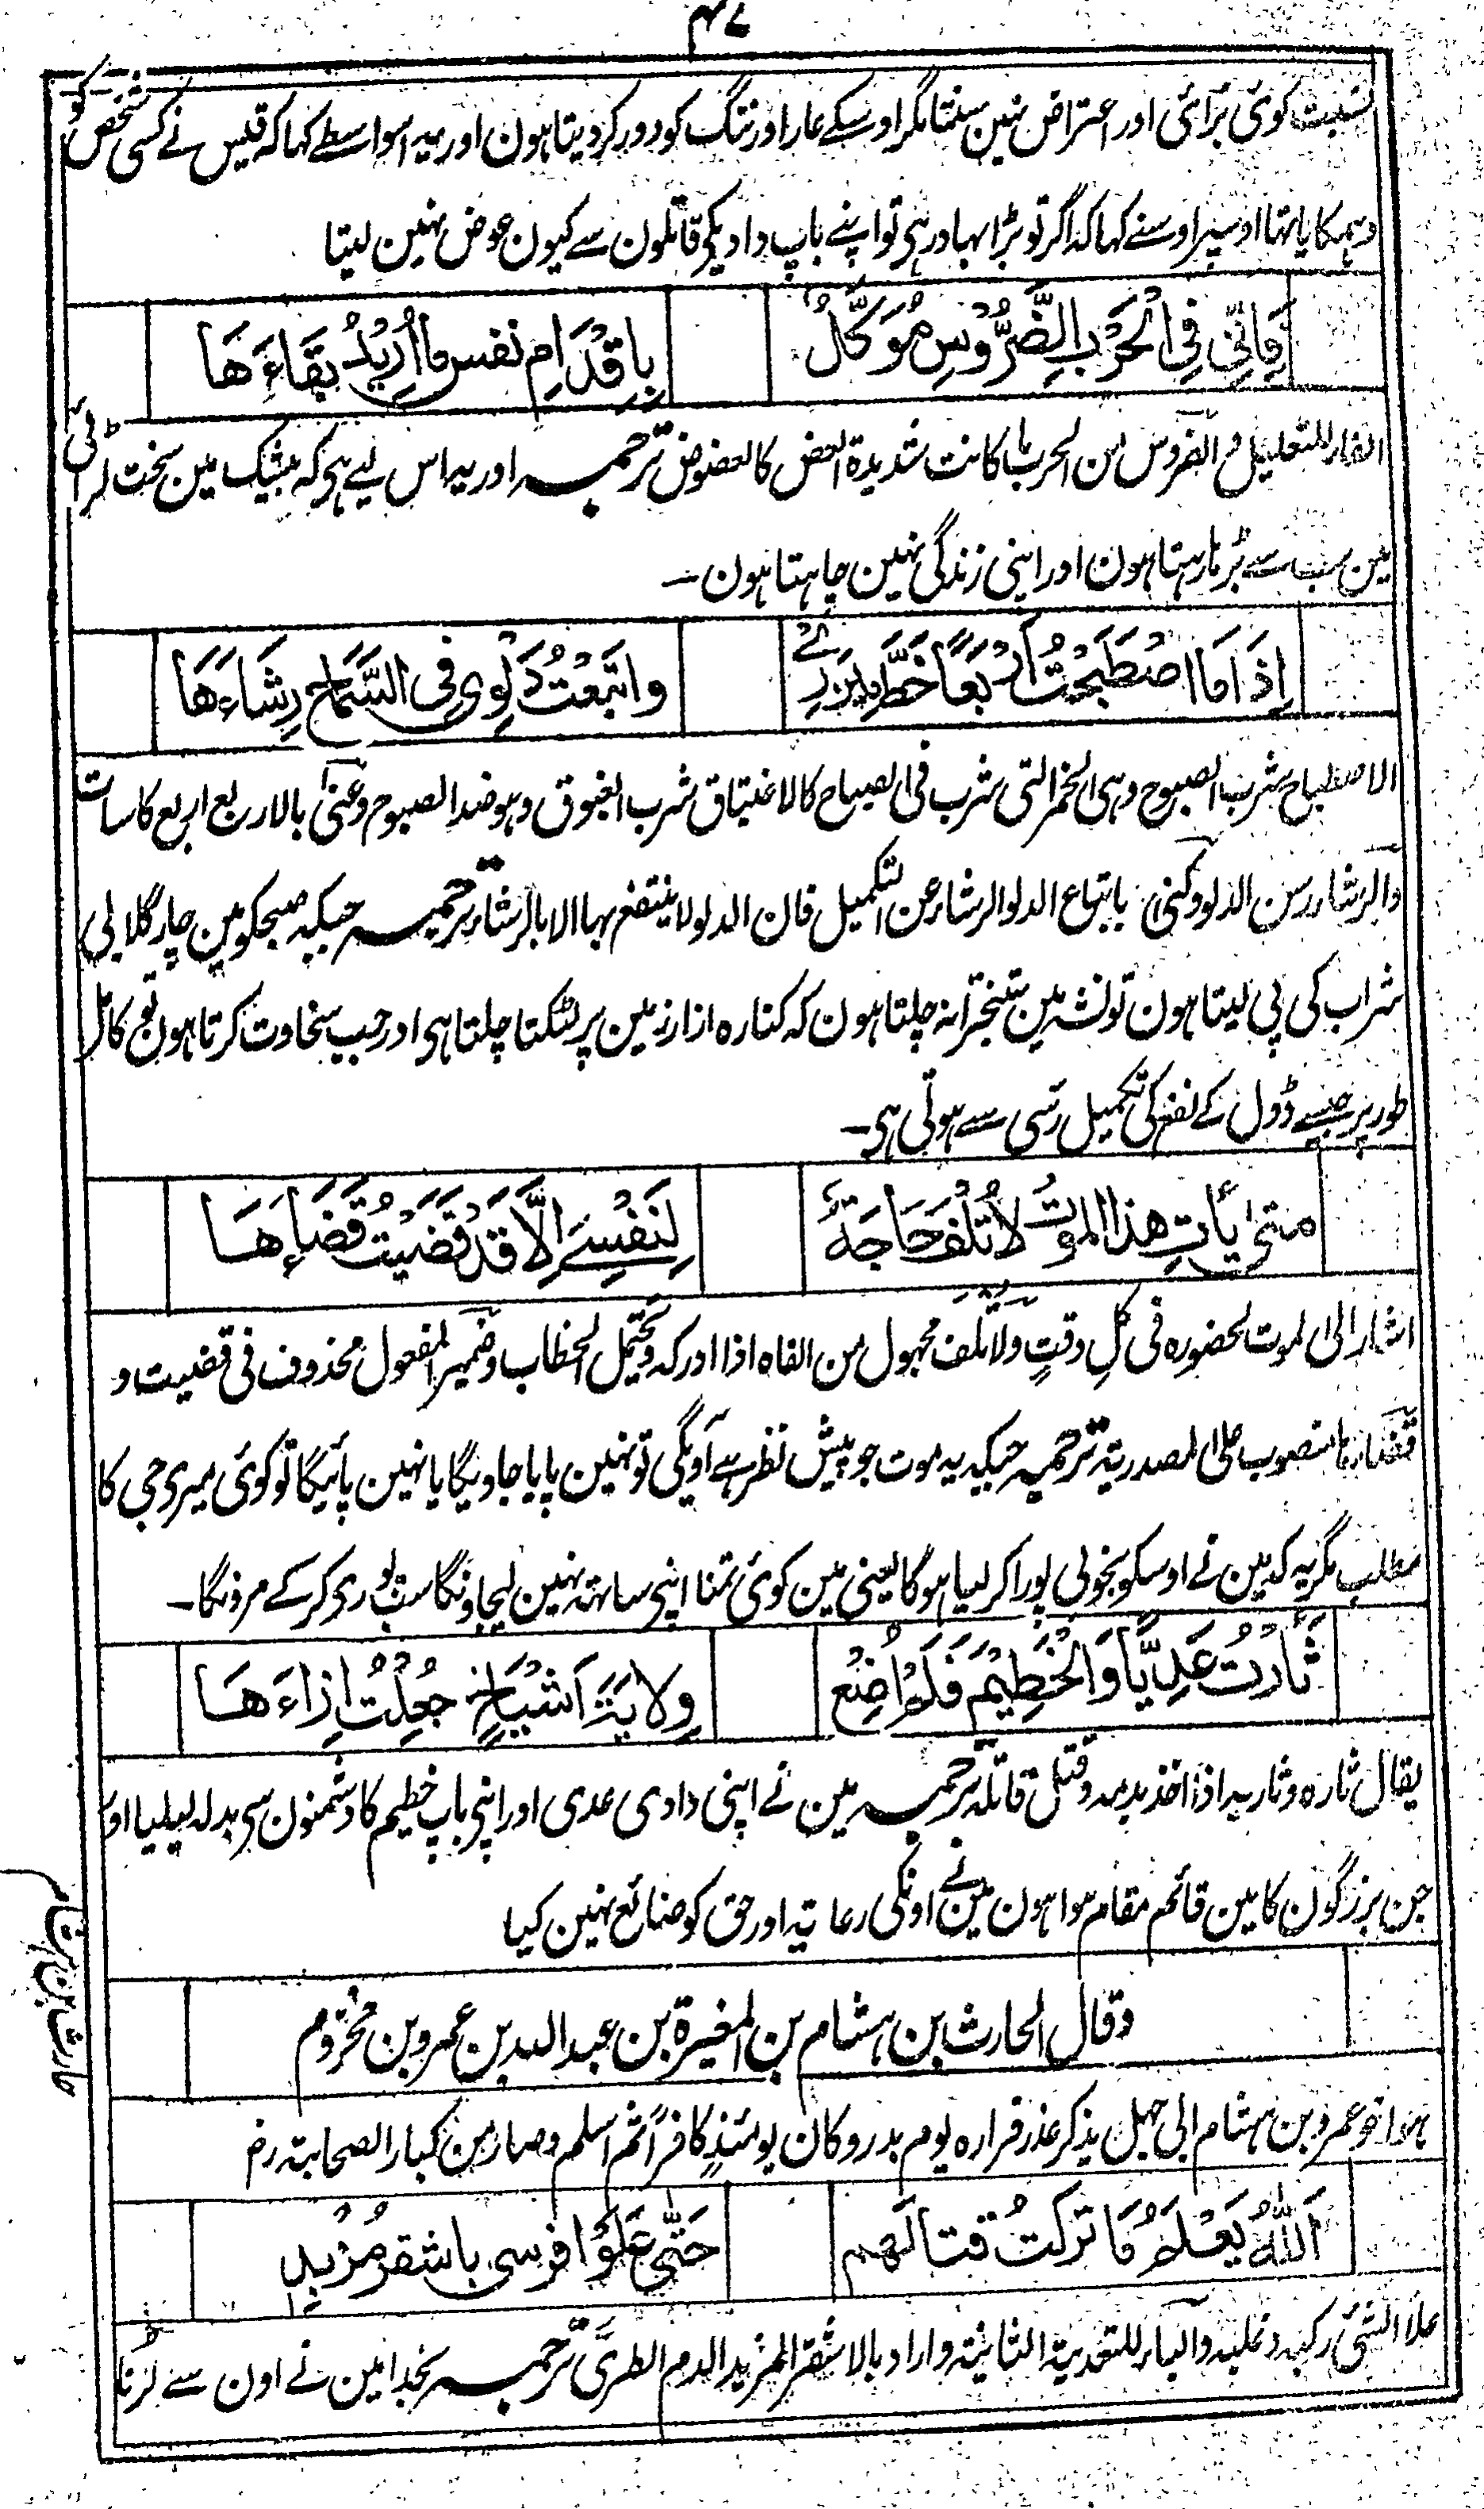 ۴۷
نسبت کوئی برائی اور اعتراض نہین سنتا مگر اوسکے عار اور ننگ کو دور کردیتا ہون اور یہ اسواسطے کہا کہ قیس نے کسی شخص کو
دہمکایا تہا اوسپر اوسنے کہا کہ اگر تو بڑا بہادر ہی تو اپنے باپ دادیکی قاتلون سے کیون عوض نہین لیتا
فَاِنِّی فِی الْحَرْبِ الضَّرُوْسِ مُوَکَّلٌ
بِاِقْدَامِ نفسٍ ما اُرِیْدُ بَقَاءَهَا
الفاء للتعلیل و الضروس من الحرب ما کانت شدیدة العض کالعضوض ترجمہ اور یہ اس لیے ہی کہ بیشک مین سخت لڑائی
مین سب سے بڑہا رہتا ہون اور اپنی زندگی نہین چاہتا ہون ۔
اِذَا مَا اصْطَبَحْتُ اَرْبَعًا خَطَّ مِیْزَرِیْ
واتْبَعْتُ دَلْوِی فِی السَّمَاحِ رِشَاءَهَا
الاصطباح شرب الصبوح وہی الخمر التی شرب فی الصباح کالاغتباق شرب الغبوق وہو ضد الصبوح وعنی بالاربع اربع کاسات
والرشاء رسن الدلو وکنی باتباع الدلو الرشاء عن التکمیل فان الدلو لا ینتفع بہا الا بالرشاء ترجمہ جبکہ صبحکو مین چار گلابی
شراب کی پی لیتا ہون تو نشہ مین متبخترانہ چلتا ہون کہ کنارہ ازار زمین پر لٹکتا چلتا ہی اور جب سخاوت کرتا ہون تو کامل
طور پر جیسے ڈول کے نفع کی تکمیل رسی سے ہوتی ہی ۔
متٰی یأتِ هذا الموتُ لا تُلْفَ حَاجَةٌ
لِنَفْسِیَ اِلَّا قَدْ قَضَیْتُ قَضَاءَهَا
اشار الی الموت لحضورہ فی کلِ وقتٍ ولا تلف مجہول من الفاہ اذا ادرکہ ویحتمل الخطاب وضمیر المفعول محذوف فی قضیت و
قضاءہا منصوب علی المصدریة ترجمہ جبکہ یہ موت جو پیش نظر ہے آویگی تو نہین پایا جاویگا یا نہین پائیگا تو کوئی میری جی کا
مطلب مگر یہ کہ مین نے اوسکو بخوبی پورا کر لیا ہوگا یعنی مین کوئی تمنا اپنی ساتہہ نہین لیجاونگا سب پوری کرکے مرونگا ۔
ثَأَرْتُ عَدِیًّا وَالْخَطِیْمَ فَلَمْ اُضِعْ
وِلَایَةَ اَشْیَاخٍ جُعِلْتُ اِزَاءَهَا
یقال ثارہ وثار بہ اذا اخذ بدمہ وقتل قاتلہ ترجمہ مین نے اپنی دادی عدی اور اپنی باپ خطیم کا دشمنون سی بدلہ لیلیا اور
جن بزرگون کا مین قائم مقام ہوا ہون مین نے اونکی رعایتہ اور حق کو ضائع نہین کیا
وقال الحارث بن ہشام بن المغیرة بن عبد اللہ بن عمرو بن مخزوم
حارث بن ہشام
ہو اخو عمرو بن ہشام ابی جہل یذکر عذر فرارہ یوم بدر وکان یومئذٍ کافراً ثم اسلم وصار من کبار الصحابتہ رض
اَللّٰهُ یَعْلَمُ مَا تَرَکْتُ قتالَهم
حَتّٰی عَلَوْا فرسی باشقرَ مُزْبِدِ
علا الشیٔ رکبہ وغلبہ والباء للتعدیة الثانیة واراد بالاشقر المزبد الدم الطری ترجمہ بخدا مین نے اون سے لڑنا